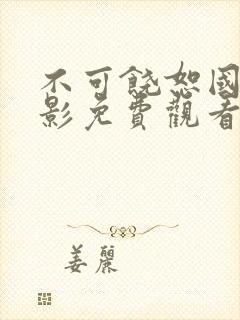 不可饶恕國
影免費觀看
姜麗